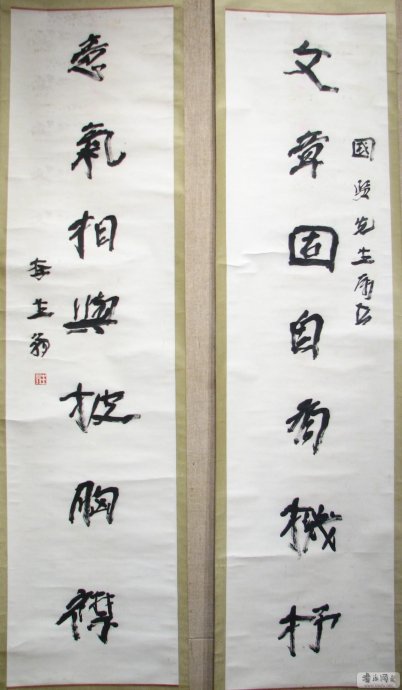 文章固自有機杼
國賢先生屬書
意氣相與披胸襟
李生翁